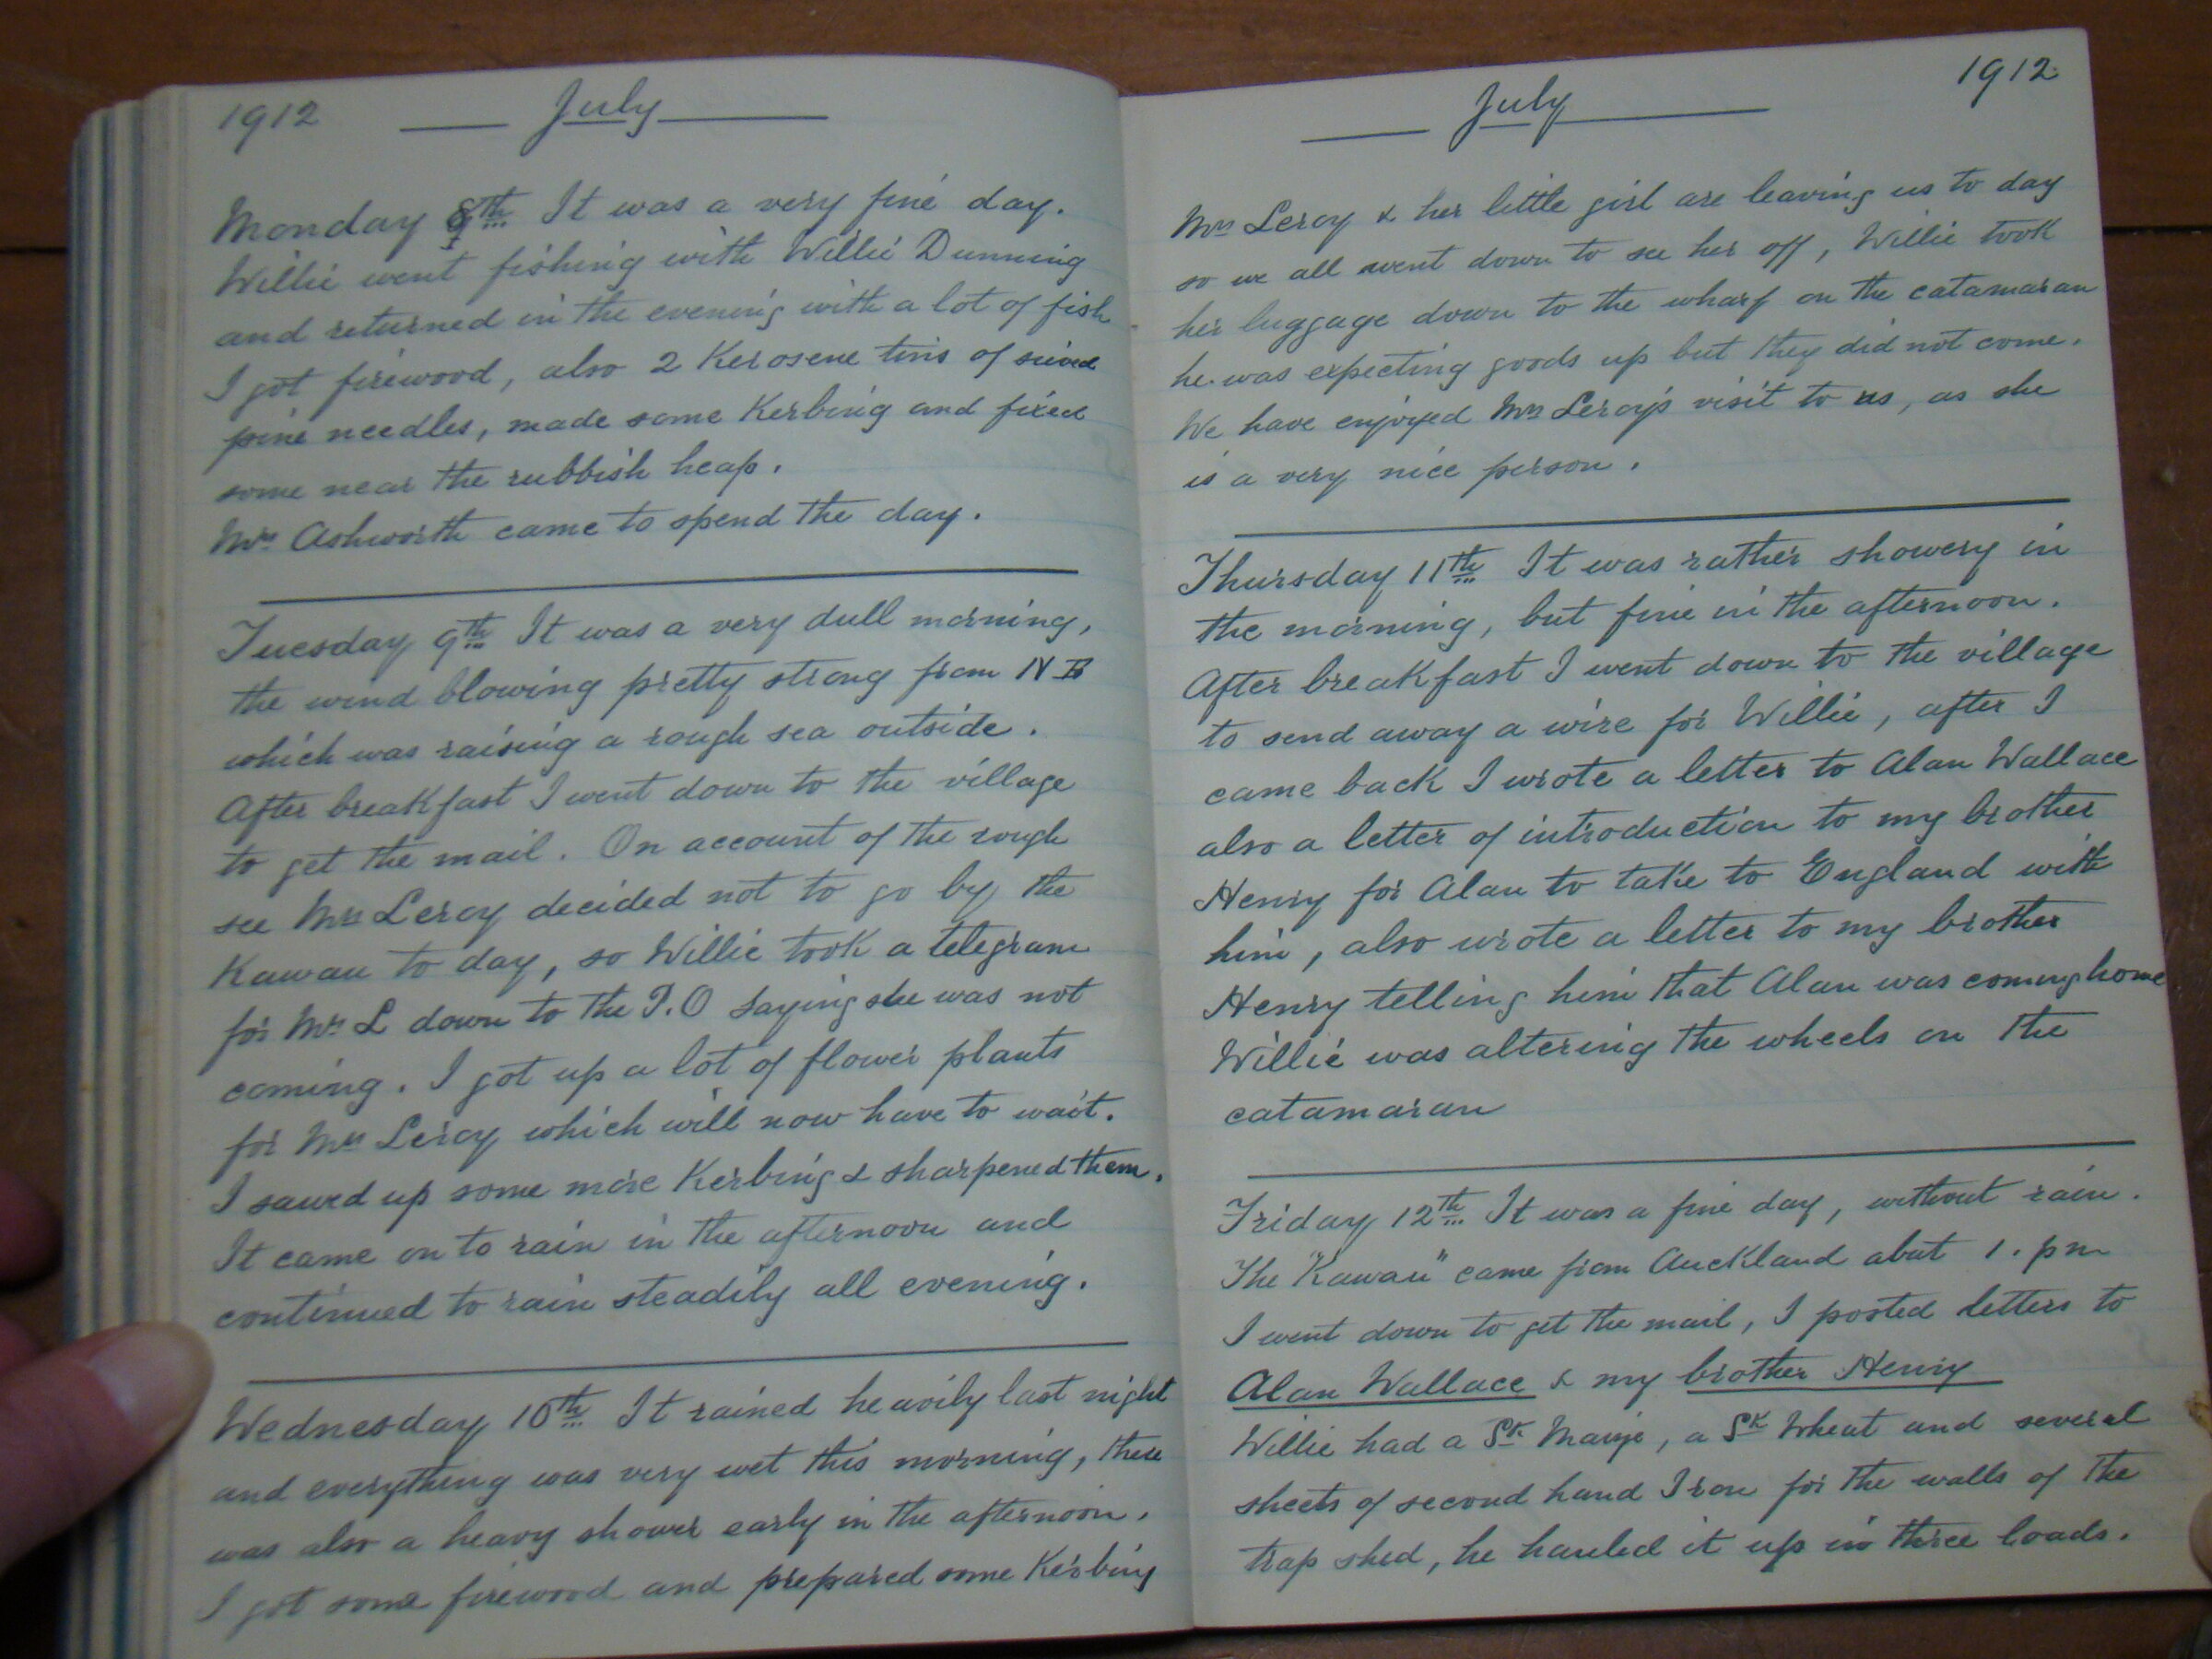 1912 July
Monday 8th It was a very fine day.
Willie went fishing with Willie Dunning
and returned in the evening with a lot of fish
I got firewood, also 2 Kerosene tins of
pine needles, made some Kerbing and fixed
some near the rubbish heap.
Mrs Ashworth came to spend the day.
Tuesday 9th It was a very dull morning,
the wind blowing pretty strong from N E
which was raising a rough sea outside.
After breakfast I went down to the village
to get the mail. On account of the rough
see Mrs Leroy decided not to go by the
Kawau to day, so Willie took a telegram
for Mrs L down to the P.O saying she was not
coming. I got up a lot of flower plants
for Mrs Leroy which will now have to wait.
I sawed up some more Kerbing & sharpened them.
It came on to rain in the afternoon and
continued to rain steadily all evening.
Wednesday 10th It rained heavily last night
and everything was very wet this morning, there
was also a heavy shower early in the afternoon.
I got some firewood and prepared some Kerbing
July 1912
Mrs Leroy & her little girl are leaving us to day
so we all went down to see her off, Willie took
her luggage down to the wharf on the catamaran
he was expecting goods up but they did not come.
We have enjoyed Mrs Leroy's visit to us, as she
is a very nice person.
Thursday 11th It was rather showery in
the morning, but fine in the afternoon.
After breakfast I went down to the village
to send away a wire for Willie, after I
came back I wrote a letter to Alan Wallace
also a letter of introduction to my brother
Henry for Alan to take to England with
him, also wrote a letter to my brother
Henry telling him that Alan was coming home
Willie was altering the wheels on the
catamaran
Friday 12th It was a fine day, without rain.
The "Kawau" came from Auckland abut 1. pm
I went down to get the mail, I posted letters to
Alan Wallace & my brother Henry
Willie had a Sk Maize, a Sk Wheat and several
sheets of second hand Iron for the walls of the
trap shed, he hauled it up in three loads.